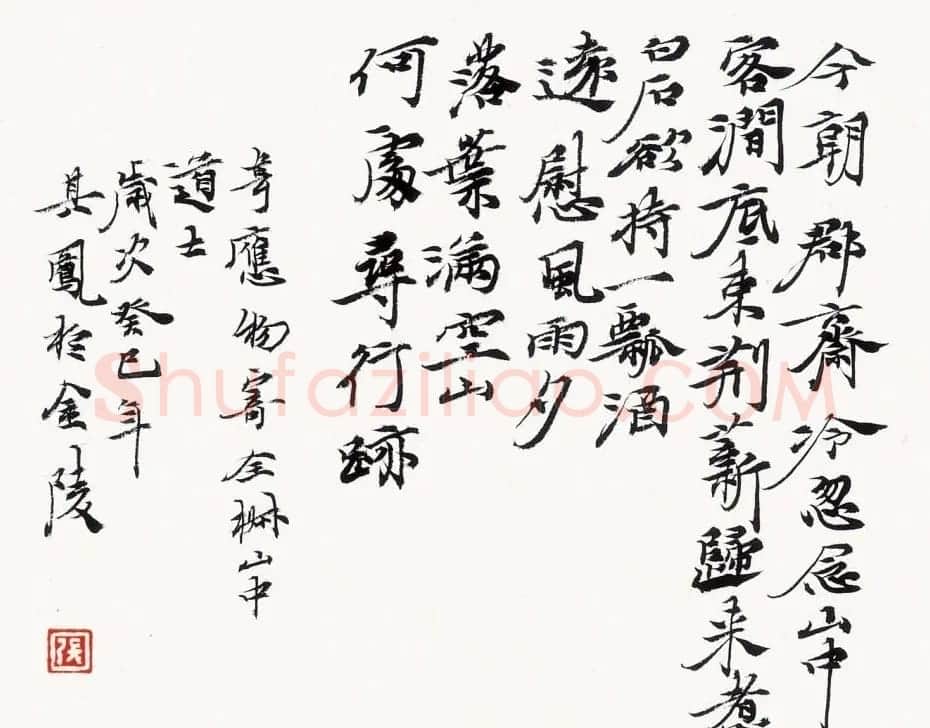 今朝郡齋冷忽念山中
客澗底束荆薪歸来煮
白石欲持一瓢酒
遠慰風雨夕
落葉滿空山
何處尋行跡
韋應物寄全椒山中
道士
歲次癸巳年
其鳳於金陵
Shufaziliao.COM